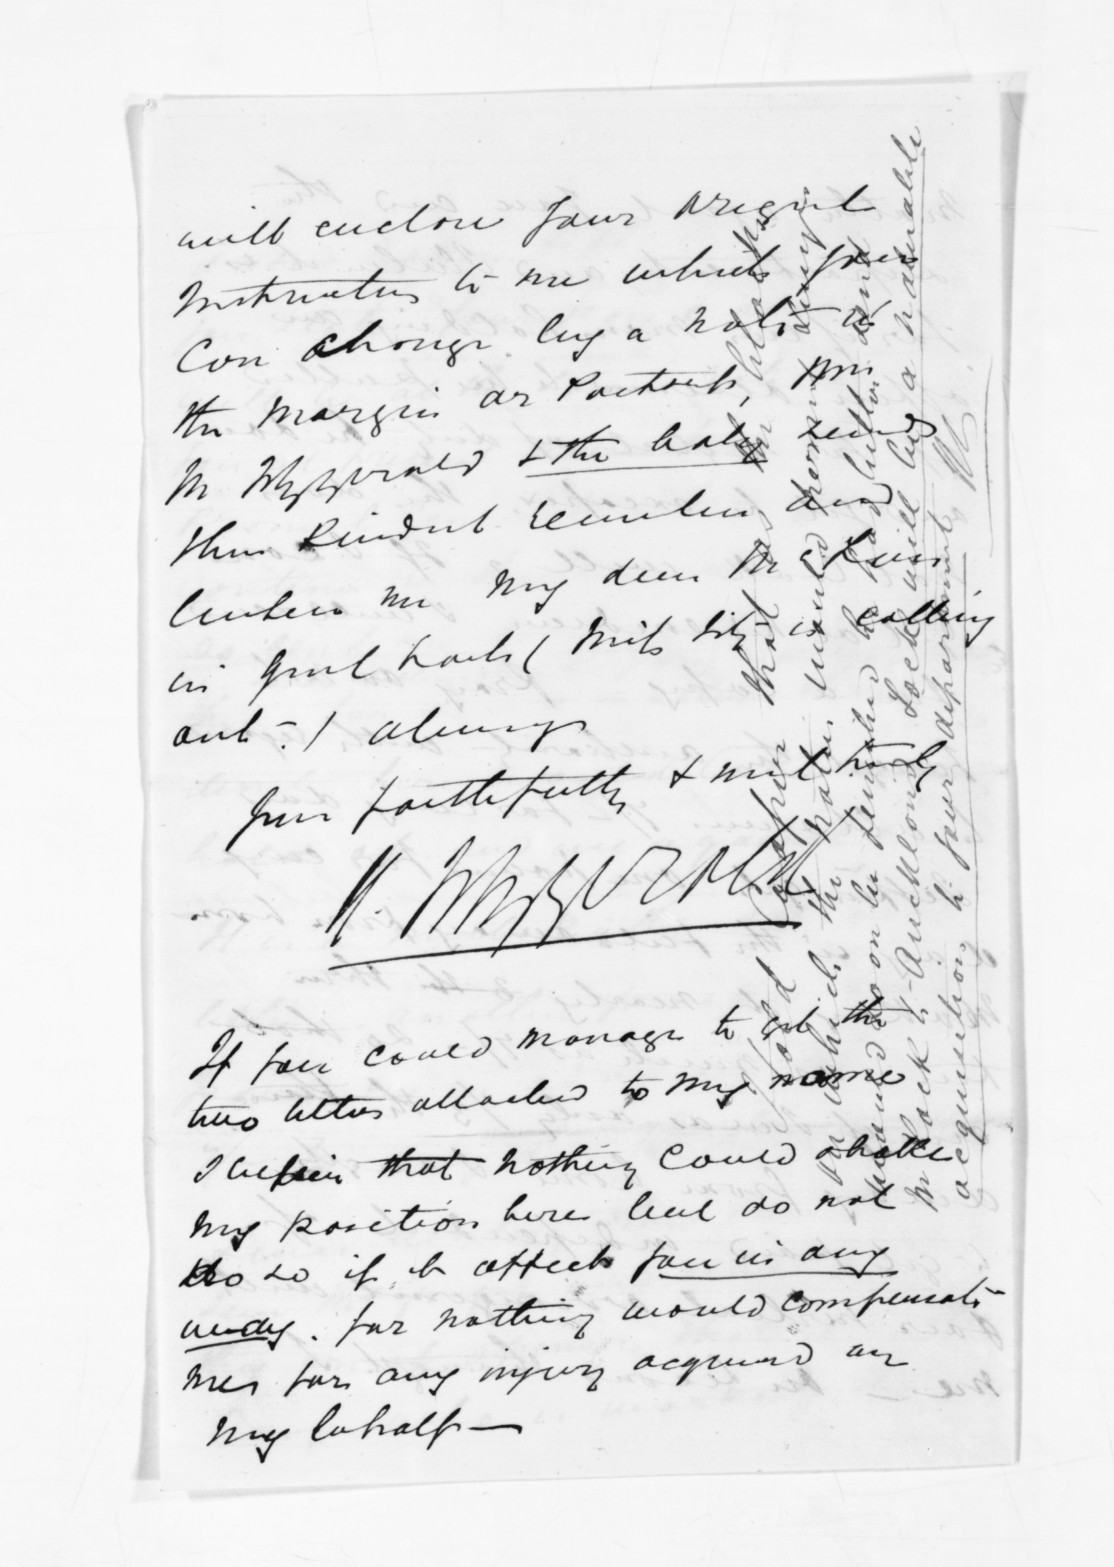 will enclose your original
Instructions to me which you
Can change by a note in
the margin or Postscript, Mrs
M Fitzgerald & the baby send
their kindest remembrances and
believe me my dear McLean
in great haste (Mils tity is calling
out -) always
Yours faithfully & most truly
N. Fitzgerald
If you could manage to get the
two letters attached to my name
I believe that nothing could shake
my position here but do not
do so if it affects you in any
way. for nothing would compensate
me for any injury acquired on
my behalf —
told Cooper that
on which the natives would
and soon be finished he had better
Mr Lock to Auckland Lock will be a valuable
acquisition to your department